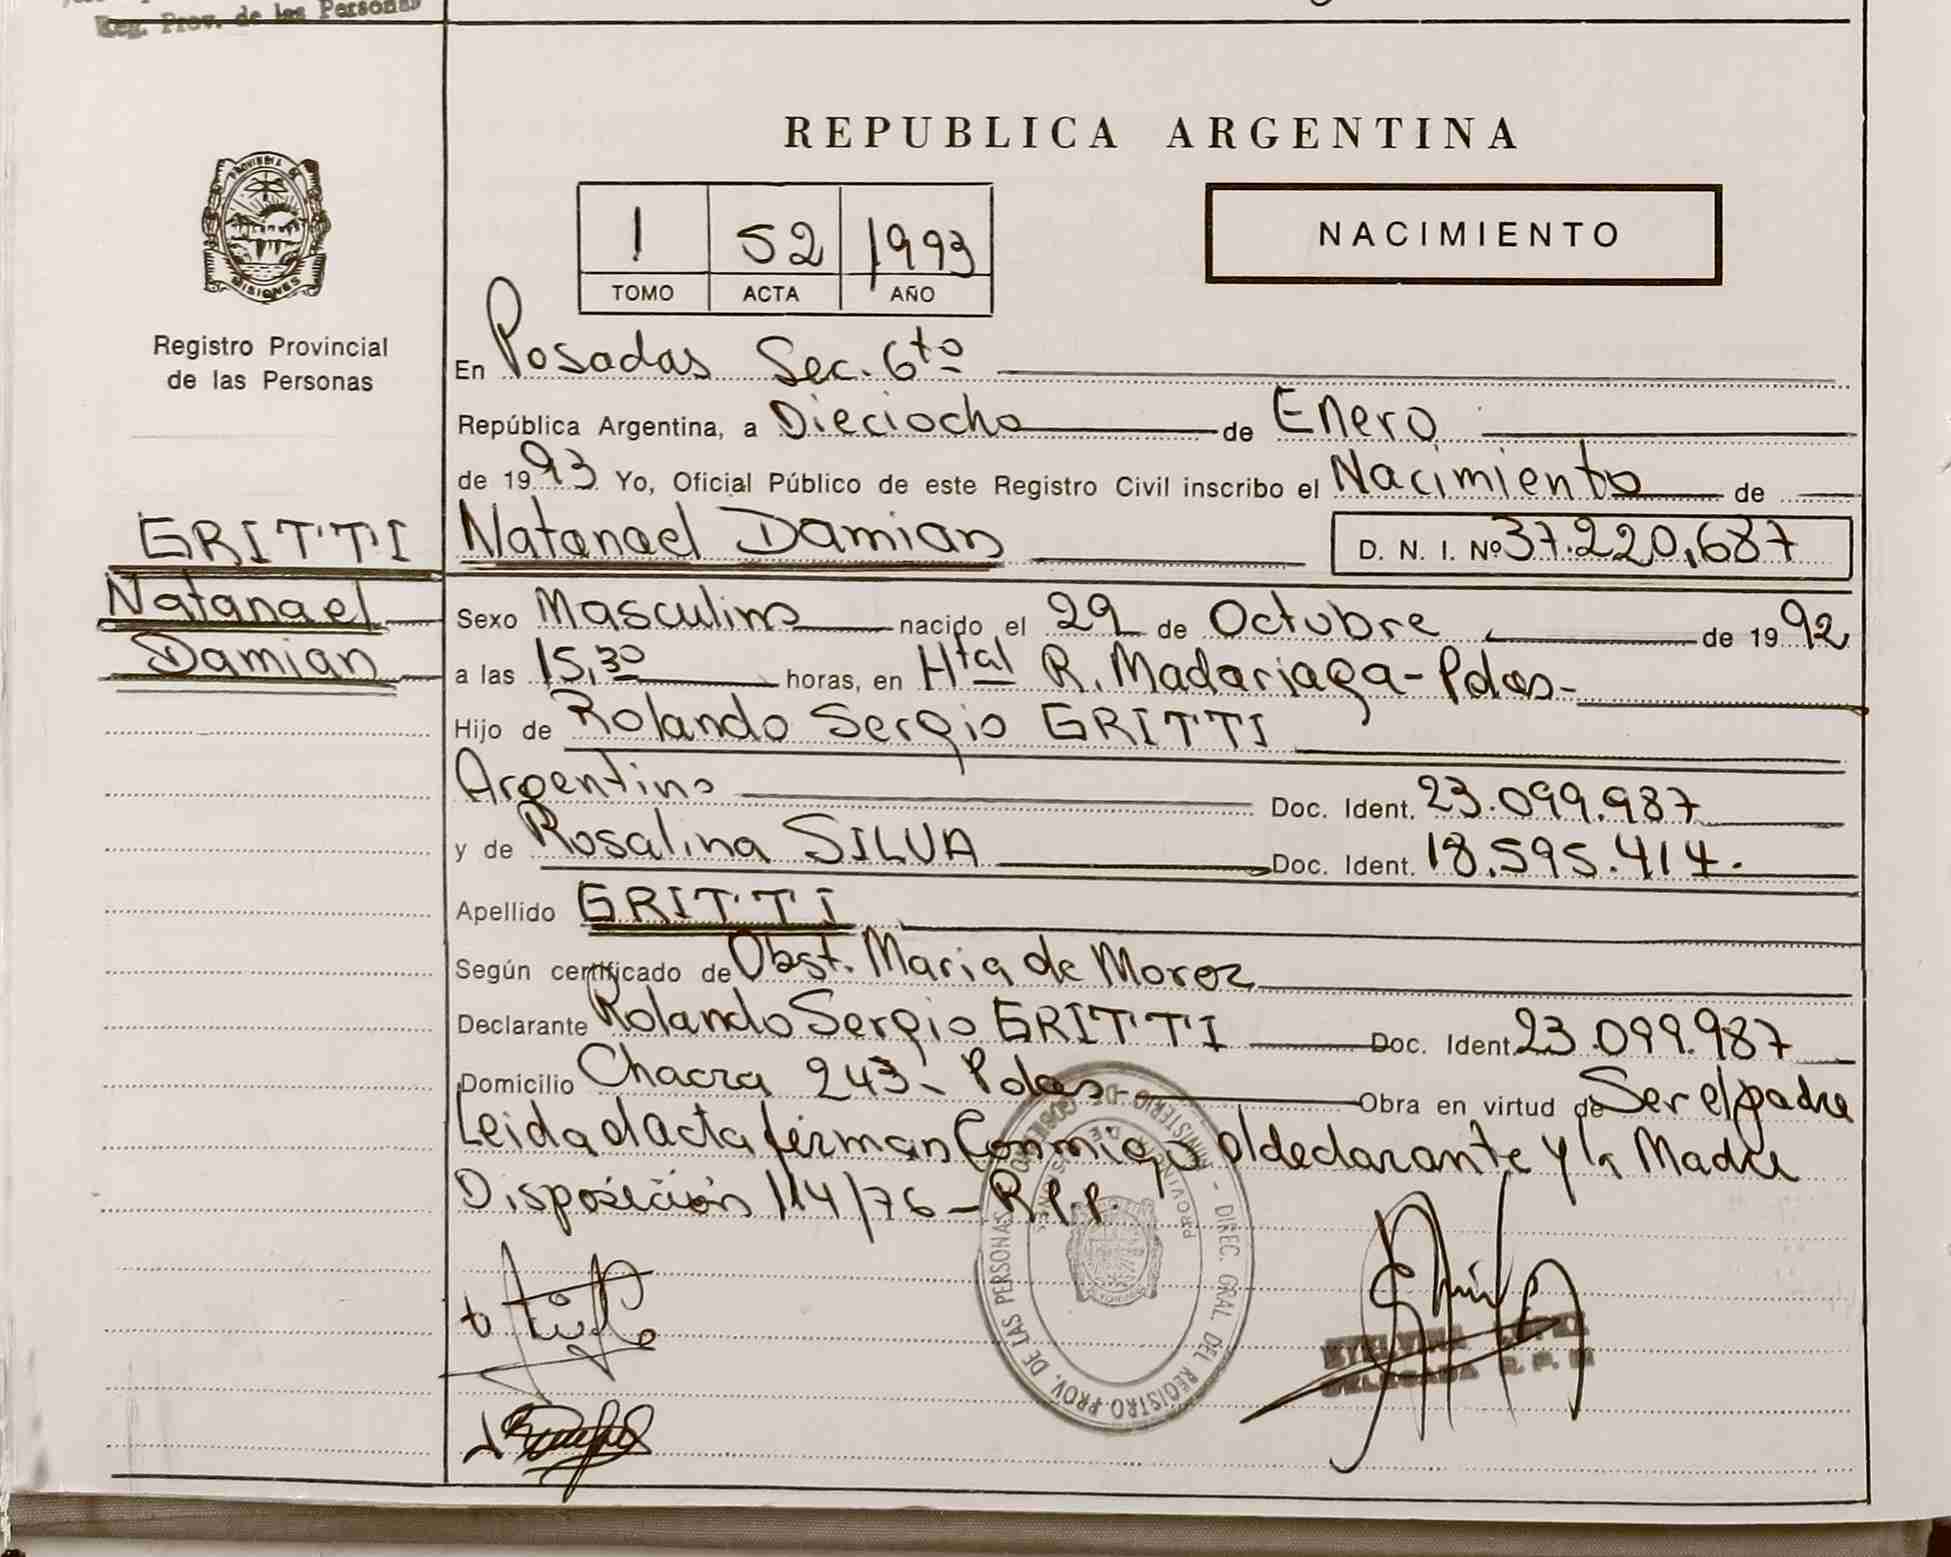 Reg. Prov. de las Personas
PROVINCIA DE
MISIONES
Registro Provincial
de las Personas
GRITTI
Natanael
Damian
REPUBLICA ARGENTINA
1 52 1993
TOMO ACTA AÑO
NACIMIENTO
En Posadas Sec. 6to
República Argentina, a Dieciocho de Enero
de 1993 Yo, Oficial Público de este Registro Civil inscribo el Nacimiento de
Natanael Damian D. N. I. Nº 37.220,687
Sexo Masculino nacido el 29 de Octubre de 1992
a las 15,30 horas, en Htal R. Madariaga - Pdas -
Hijo de Rolando Sergio GRITTI
Argentino Doc. Ident. 23.099.987
y de Rosalina SILVA Doc. Ident. 18.595.414.
Apellido GRITTI
Según certificado de Obst. Maria de Moroz
Declarante Rolando Sergio GRITTI Doc. Ident. 23.099.987
Domicilio Chacra 243 - Pdas - Obra en virtud de Ser el padre
Leida el acta firman Conmigo el declarante y la Madre
Disposición 114/76 - R.P.P.
MINISTERIO DE GOBIERNO - DIREC. GRAL. DEL REGISTRO PROV. DE LAS PERSONAS
PROVINCIA DE MISIONES
ETELVINA LOPEZ
DELEGADA R. P. P.